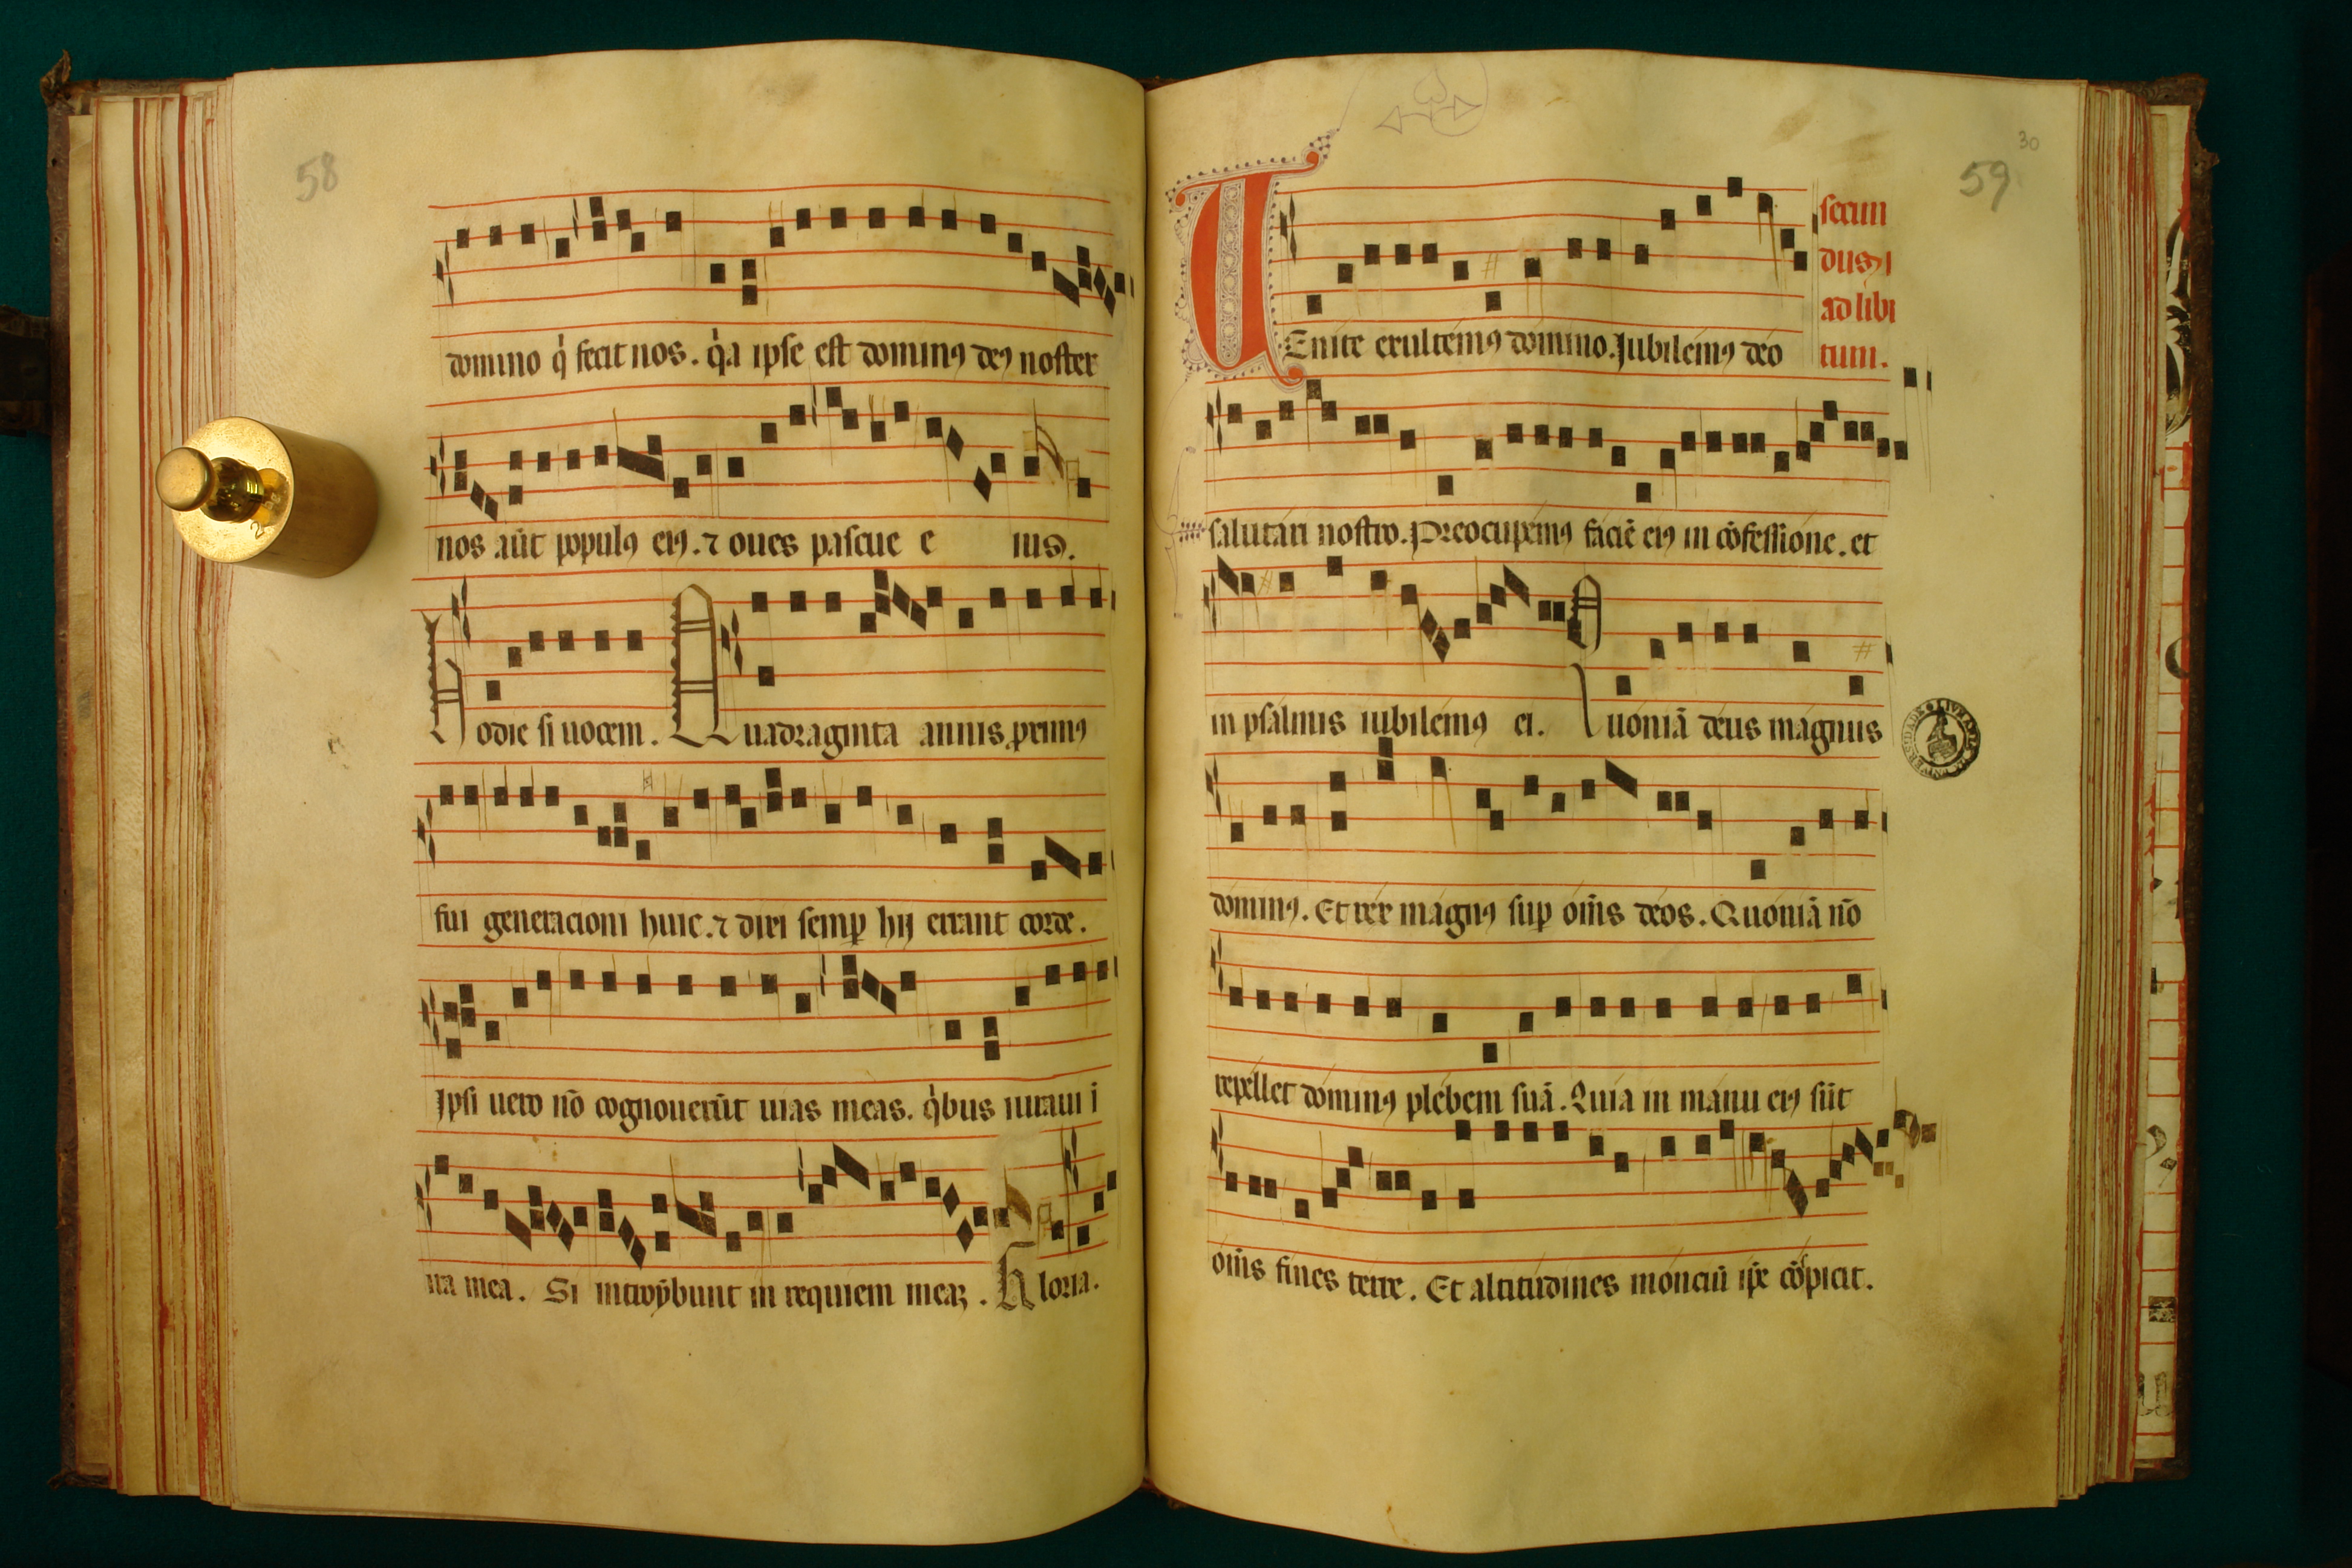 58
domino q̇ fecit nos. q̇a ipse est dominꝯ deꝯ noster
nos aūt populꝯ eiꝯ. ⁊ oues pascue e ius.
Hodie si uocem. Quadraginta annis proximꝯ
fui generacioni huic. ⁊ dixi semꝑ hij errant corde.
Ipsi uero nō cognouerūt uias meas. q̇bus iuraui i
ira mea. Si introybunt in requiem meaꝫ. Gloria.
30
59
UEnite exultemꝯ domino. Jubilemꝯ deo
secun
dus
ad libi
tum.
salutari nostro. Preocupemꝯ faciē eiꝯ in cōfessione. et
in psalmis iubilemꝯ ei. Quoniā deus magnus
dominꝯ. Et rex magnꝯ suꝑ om̄s deos. Quoniā nō
repellet dominꝯ plebem suā. Quia in manu eiꝯ sūt
om̄s fines terre. Et altitudines monciū ip̄e cōspicit.